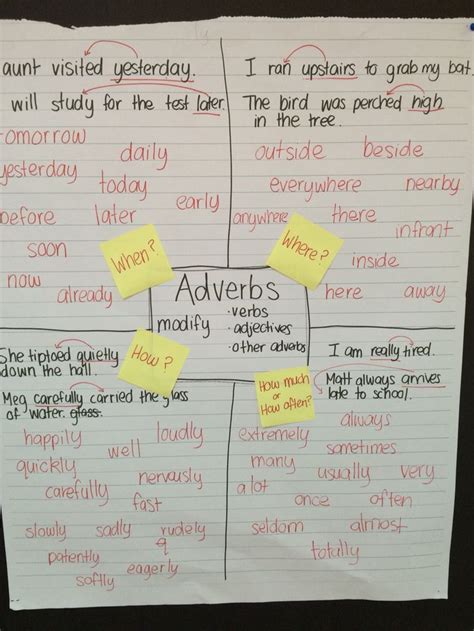 aunt visited yesterday.
will study for the test later.
tomorrow
daily
yesterday
today
early
before
later
soon
now
already
When?
I ran upstairs to grab my bat.
The bird was perched high
in the tree.
outside
beside
everywhere
nearby
anywhere
there
infront
inside
here
away
Where?
Adverbs
modify
· verbs
· adjectives
· other adverbs
How?
She tiptoed quietly
down the hall.
Meg carefully carried the glass
of water. glass.
happily
loudly
well
quickly
nervously
carefully
fast
slowly
sadly
rudely
patently
eagerly
softly
How much
or
How often?
I am really tired.
Matt always arrives
late to school.
always
extremely
sometimes
many
usually
very
a lot
once
often
seldom
almost
totally